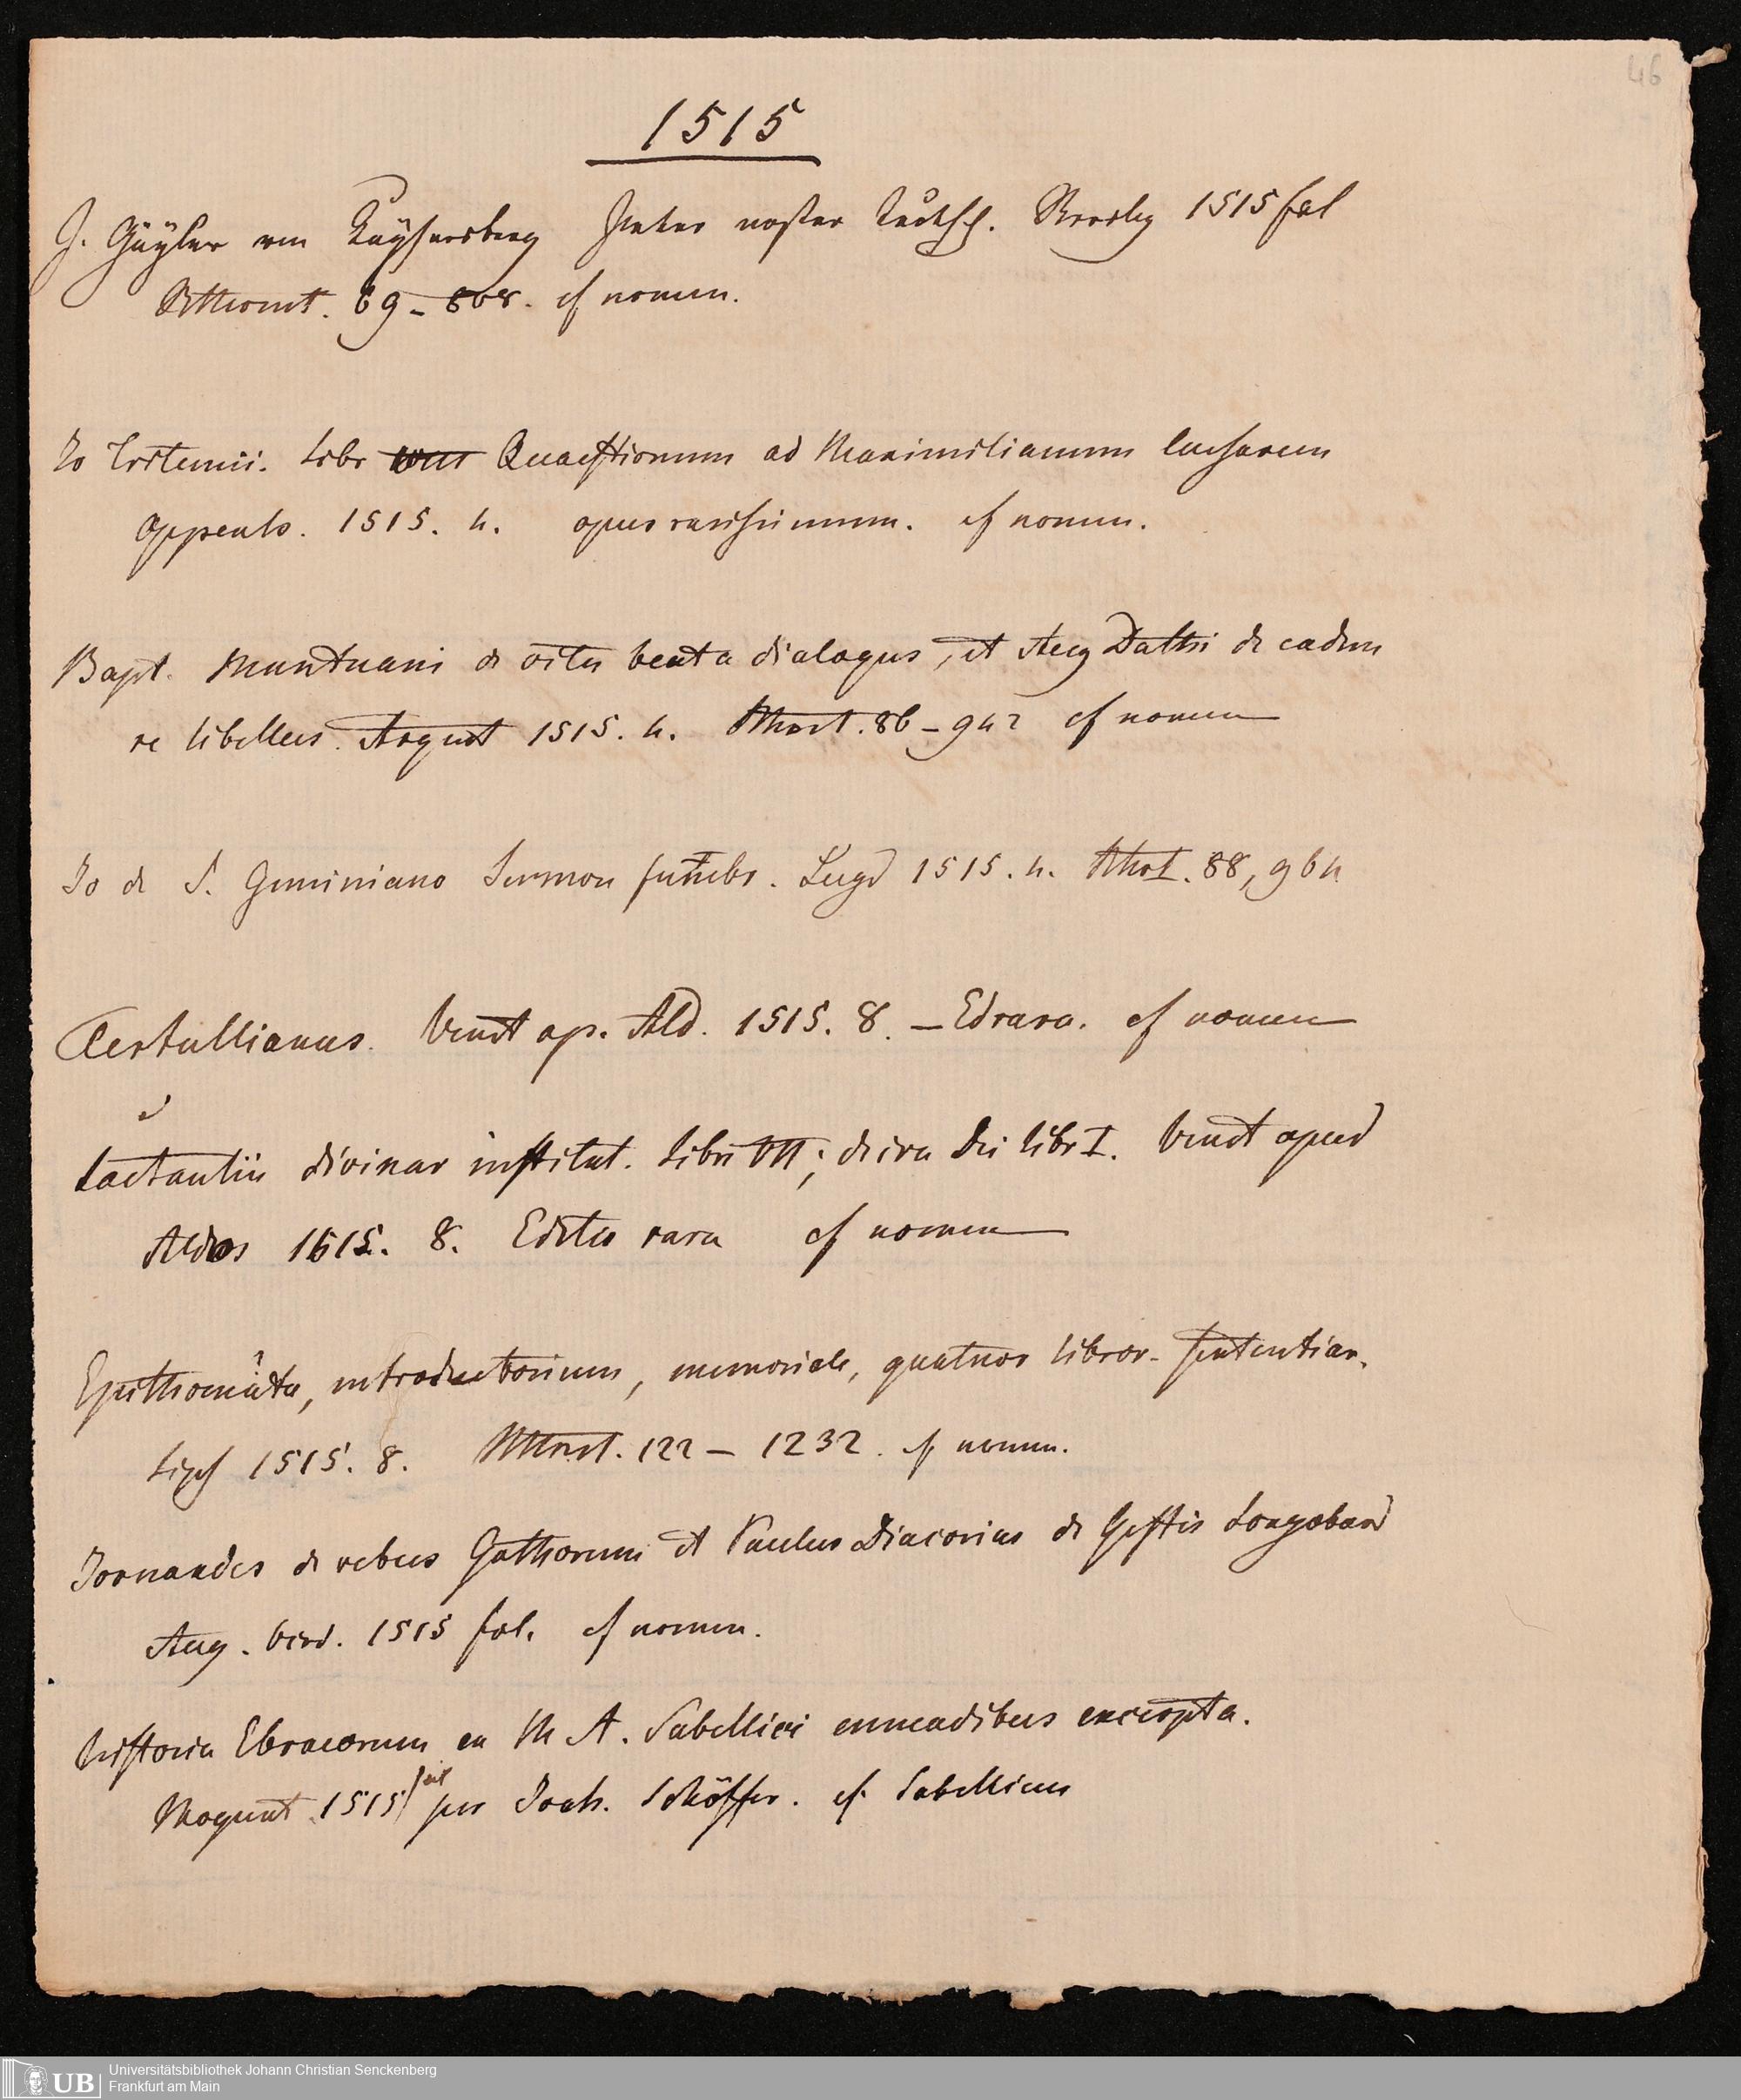 46
1515
J. Gäyler von Kaysersberg Pater noster Teutsch. 1515 fol
69 - 868. cf nomen.
Jo Tritemii. Libr Quaestionum ad Maximilianum Caesarem
Oppenh. 1515. 4. opus rarissimum. cf nomen.
Bapt. Mantuani de vita beata dialogus, et Aug Dathi de eadem
re libellus. Argent 1515. 4. 86 - 942 cf nomen
Jo de S. Geminiano Sermon funebr. Lugd 1515. 4. 88, 964
Tertullianus. Venet ap. Ald. 1515. 8. — Ed rara. cf nomen
Lactantii divinar institut. Libri VII; de ira Dei libr I. Venet apud
Aldos 1515. 8. Editio rara cf nomen
Epithomata, introductorium, memoriale, quatuor libror. sententiar.
Lips 1515. 8. 122 — 1232. cf nomen.
Jornandes de rebus Gothorum et Paulus Diaconus de Gestis Longobard
Aug. Vind. 1515 fol. cf nomen.
Historia Ebraeorum ex M A. Sabellici enneadibus excerpta.
Mogunt 1515 per Joah. Schöffer. cf. Sabellicus
UB Universitätsbibliothek Johann Christian Senckenberg
Frankfurt am Main